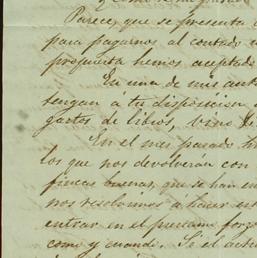 Parece, que se presenta
para pagarnos al contado
propuesta hemos aceptado
En una de mis ant
tengan a tu disposicion
gastos de libros, vino
En el mes pasado hi
los que nos devolverán con
fincas buenas, que se han
nos resolvemos á hacer est
entrar en el procsimo forz
como y cuando. Si el act